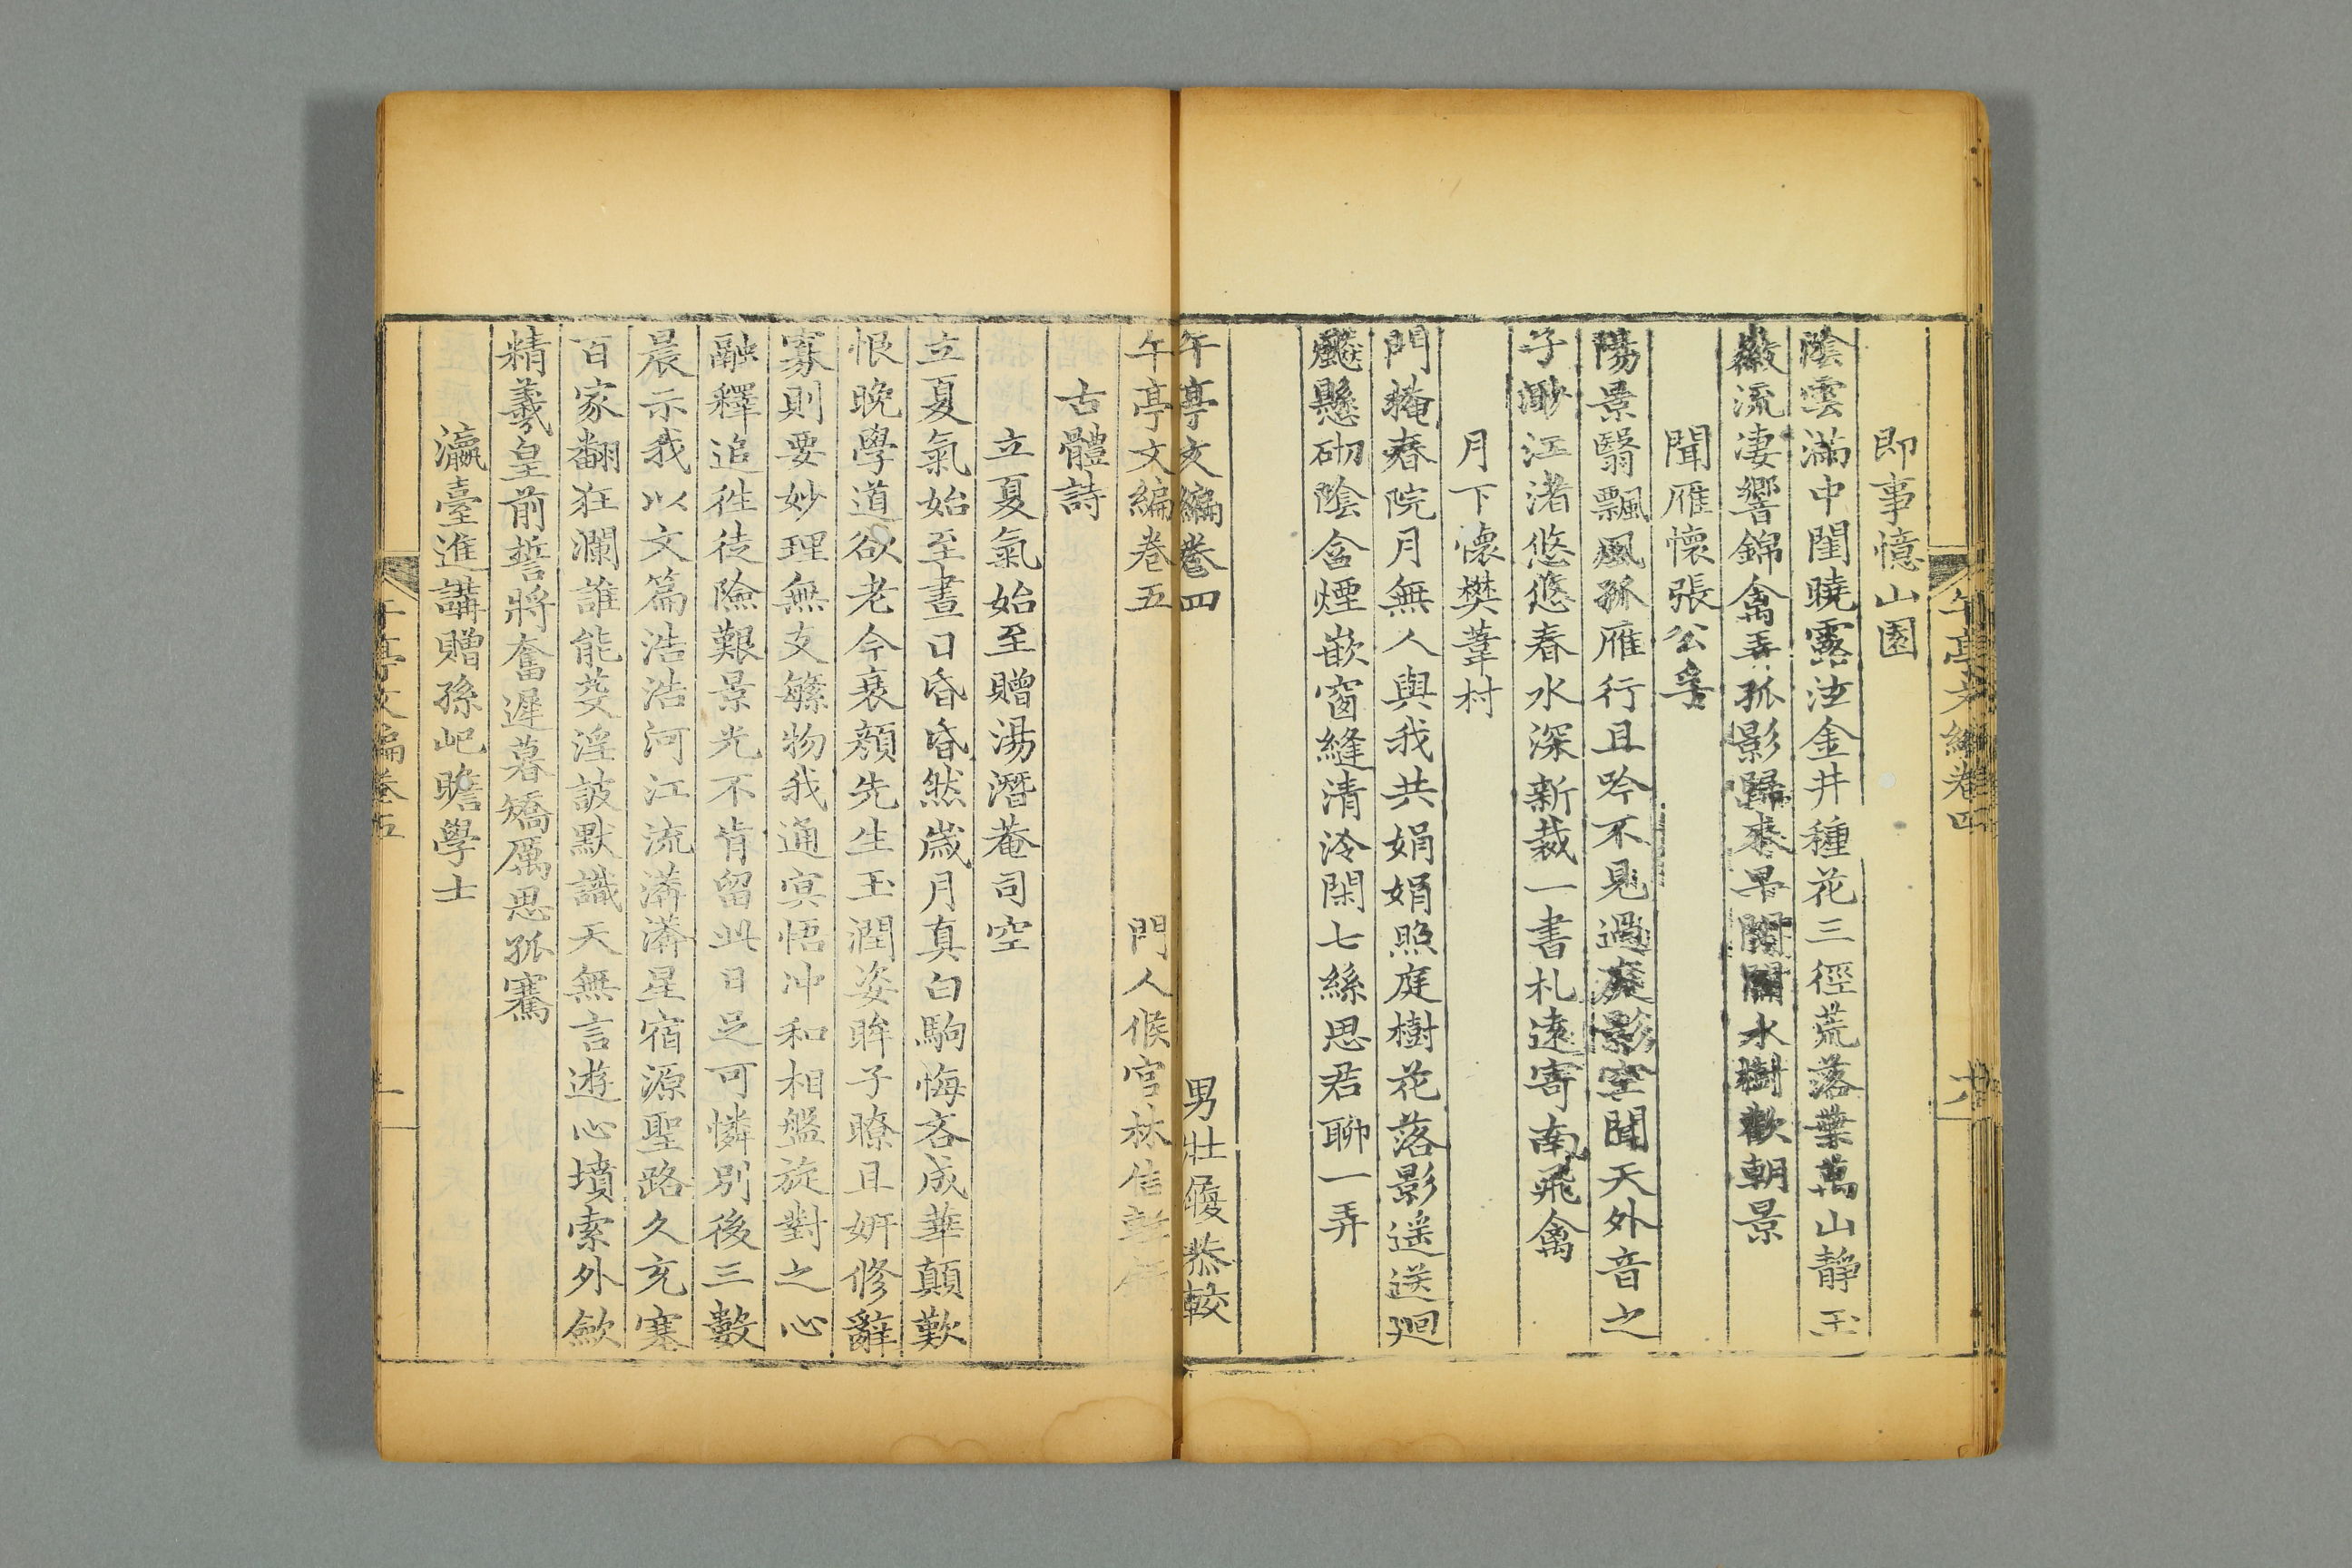 午亭文編卷四
十八
即事憶山園
陰雲滿中閨曉露泣金井種花三徑荒落葉萬山靜玉
徽流凄響錦禽弄孤影歸來早閉關水樹歡朝景
聞雁懷張公孚
陽景翳飄風孤雁行且吟不見過庭影空聞天外音之
子渺江渚悠悠春水深新裁一書札遠寄南飛禽
月下懷樊葦村
門掩春院月無人與我共娟娟照庭樹花落影遥送廻
飇懸砌陰含煙嵌窗縫清泠閑七絲思君聊一弄
午亭文編卷四
男壯履恭較
午亭文編卷五
門人候官林佶
古體詩
立夏氣始至贈湯潛菴司空
立夏氣始至晝日昏昏然歲月真白駒悔吝成華顛歎
恨晚學道欲老今衰顏先生玉潤姿眸子瞭且姸修辭
寡則要妙理無支緐物我通寞悟冲和相盤旋對之心
融釋追徃徒險艱景光不肯留此日足可憐別後三數
晨示我以文篇浩浩河江流滿滿星宿源聖路久充塞
百家翻狂瀾誰能芟淫詖默識天無言遊心墳索外歛
精羲皇前誓將奮遲暮矯厲思孤騫
瀛臺進講贈孫屺瞻學士
午亭文編卷五
一